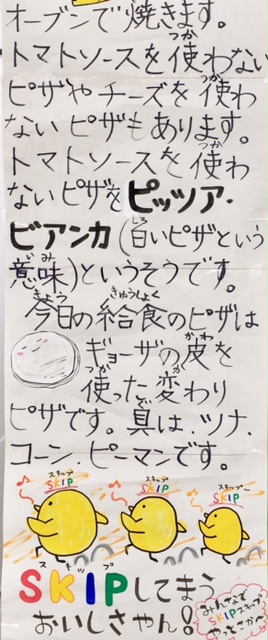 オーブンで焼きます。
トマトソースを使わない
ピザやチーズを使わ
ないピザもあります。
トマトソースを使わ
ないピザをピッツア・
ビアンカ(白いピザという
意味)というそうです。
今日の給食のピザは
ギョーザの皮を
使った変わり
ピザです。具は、ツナ、
コーン、ピーマンです。
スキップ
SKIP
スキップ
SKIP
スキップ
SKIP
SKIPしてまう
おいしさやん!
みんなで
SKIPスキップ